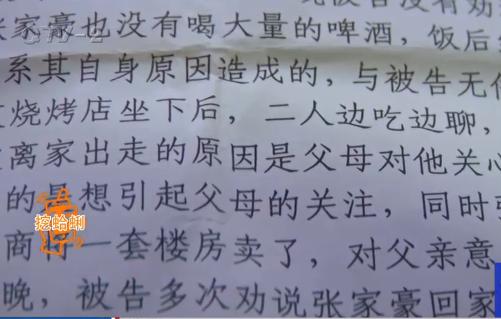 CCTV-2
张家豪也没有喝大量的啤酒，饭后
系其自身原因造成的，与被告无
烧烤店坐下后，二人边吃边聊，
离家出走的原因是父母对他关心
的是想引起父母的关注，同时
挖蛤蜊
商 一套楼房卖了，对父亲意
晚，被告多次劝说张家豪回家